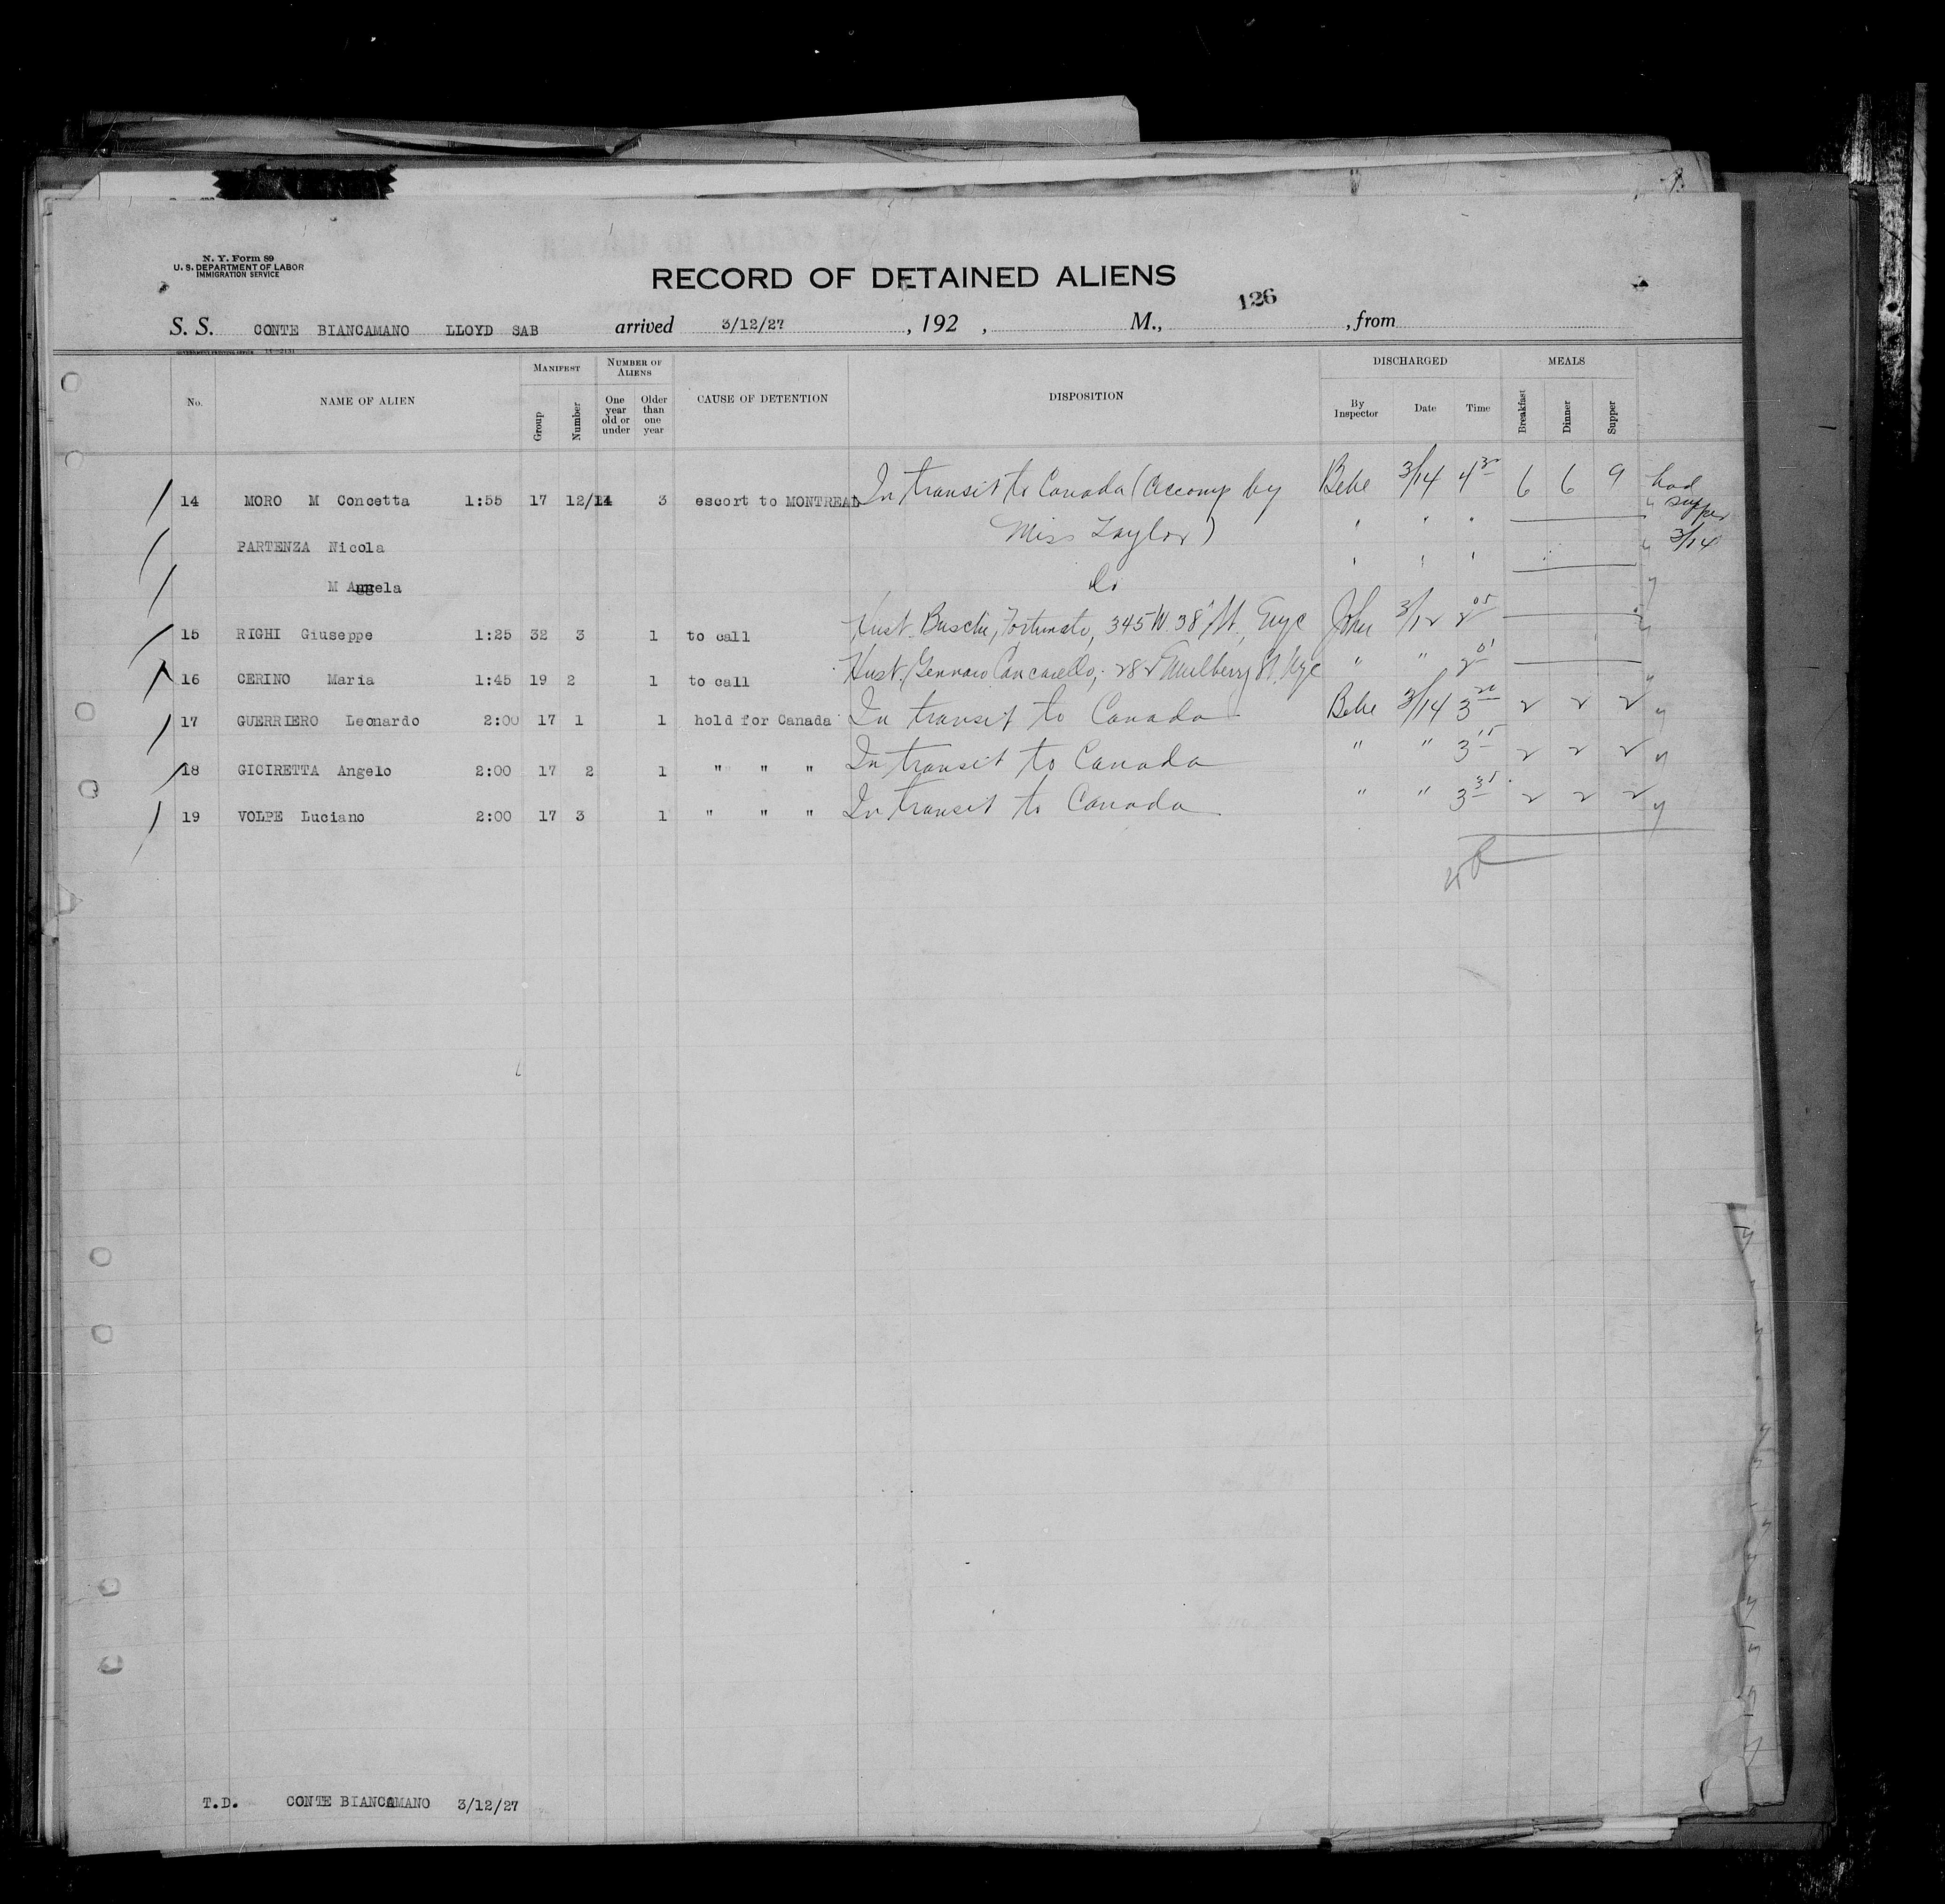 N. Y. Form 89
U. S. DEPARTMENT OF LABOR
IMMIGRATION SERVICE
RECORD OF DETAINED ALIENS
126
S. S. CONTE BIANCAMANO LLOYD SAB arrived 3/12/27 , 192 , M., , from
No. NAME OF ALIEN MANIFEST Group Number NUMBER OF ALIENS One year old or under Older than one year CAUSE OF DETENTION DISPOSITION DISCHARGED By Inspector Date Time MEALS Breakfast Dinner Supper
14 MORO M Concetta 1:55 17 12/14 3 escort to MONTREAL In transit to Canada (Accomp by 3/14 4 30 6 6 9 had supper
PARTENZA Nicola Miss Taylor) 3/14
M Angela Do
15 RIGHI Giuseppe 1:25 32 3 1 to call Fortunato, 345 W. 38 St., Nyc 3/12 2 05
16 CERINO Maria 1:45 19 2 1 to call Gennaro Mulberry St. Nyc " "
17 GUERRIERO Leonardo 2:00 17 1 1 hold for Canada In transit to Canada 3/14 3 20 2 2 2
18 GICIRETTA Angelo 2:00 17 2 1 " " " In transit to Canada " " 3 15 2 2 2
19 VOLPE Luciano 2:00 17 3 1 " " " In transit to Canada " " 3 2 2 2
T.D. CONTE BIANCAMANO 3/12/27